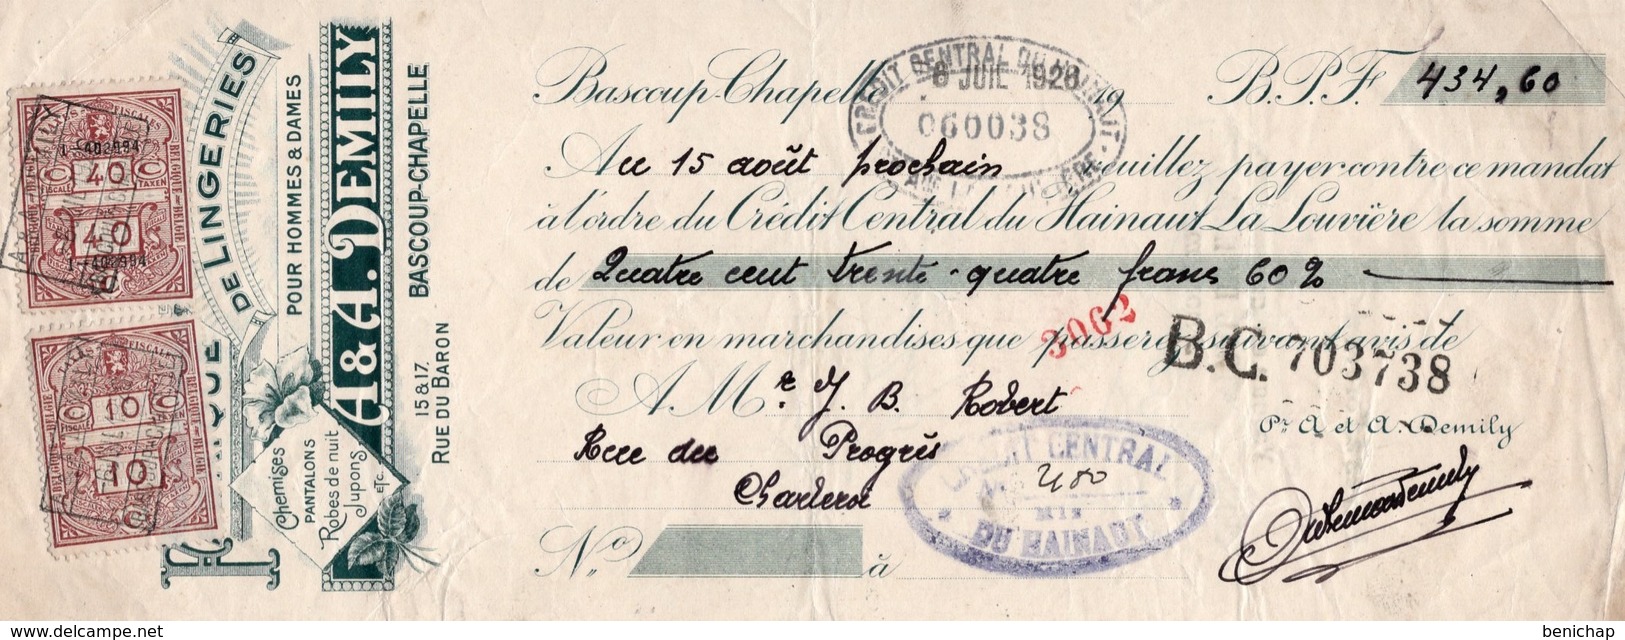 FISCALES
BELGIQUE BELGIË
BELGIQUE BELGIË
40
1-40
FISCALE
TAXEN
40
FISCALES
10
FISCALE
TAXEN
10
DE LINGERIES
POUR HOMMES & DAMES
A & A. DEMILY
BASCOUP-CHAPELLE
15 & 17.
RUE DU BARON
Chemises
PANTALONS
Robes de nuit
Jupons
ETC.
Bascoup-Chapelle 19
CREDIT CENTRAL DU HAINAUT
6 JUIL 1928
060038
B.P.F. 434,60
Au 15 août prochain veuillez payer contre ce mandat
à l'ordre du Crédit Central du Hainaut La Louvière la somme
de Quatre cent trente-quatre francs 60 %
Valeur en marchandises que passerez suivant avis de
3062
B.C. 703738
A Mr J. B. Robert
Rue du Progrès
Charleroi
CREDIT CENTRAL
480
DU HAINAUT
Pr A et A. Demily
No à
benichap www.delcampe.net